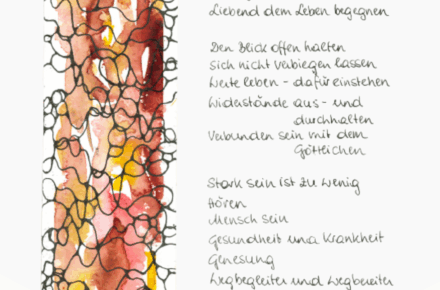 Liebend dem Leben begegnen
Den Blick offen halten
sich nicht verbiegen lassen
Werte leben - dafür einstehen
Widerstände aus- und
durchhalten
Verbunden sein mit dem
Göttlichen
Stark sein ist zu wenig
Hören
Mensch sein
Gesundheit und Krankheit
Genesung
Wegbegleiter und Wegbereiter